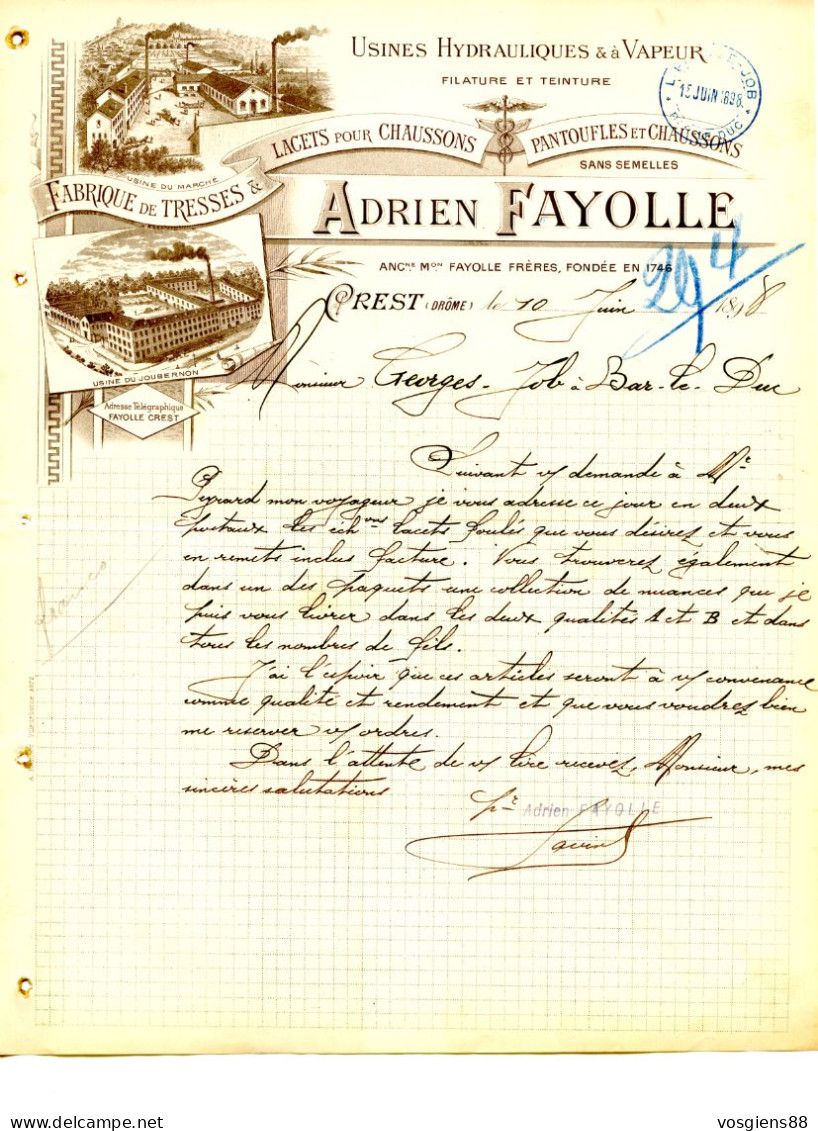 USINES HYDRAULIQUES & à VAPEUR
FILATURE ET TEINTURE
JOB
15 JUIN 1898
LACETS POUR CHAUSSONS
PANTOUFLES ET CHAUSSONS
SANS SEMELLES
USINE DU MARCHÉ
FABRIQUE DE TRESSES &
ADRIEN FAYOLLE
ANCNE MON FAYOLLE FRÈRES, FONDÉE EN 1746
294
CREST (DRÔME) le 10 Juin 1898
USINE DU JOUBERNON
Adresse Télégraphique
FAYOLLE CREST
Monsieur Georges Job à Bar-le-Duc
Suivant v/ demande à Mr
Peyrard mon voyageur je vous adresse ce jour en deux
postaux les échons lacets foulés que vous désirez et vous
en remets inclus facture. Vous trouverez également
dans un des paquets une collection de nuances que je
puis vous livrer dans les deux qualités A et B et dans
tous les nombres de fils.
J'ai l'espoir que ces articles seront à v/ convenance
comme qualité et rendement et que vous voudrez bien
me reserver v/ ordres.
Dans l'attente de v/ lire recevez, Monsieur, mes
sincères salutations
pr Adrien FAYOLLE
franco
vosgiens88